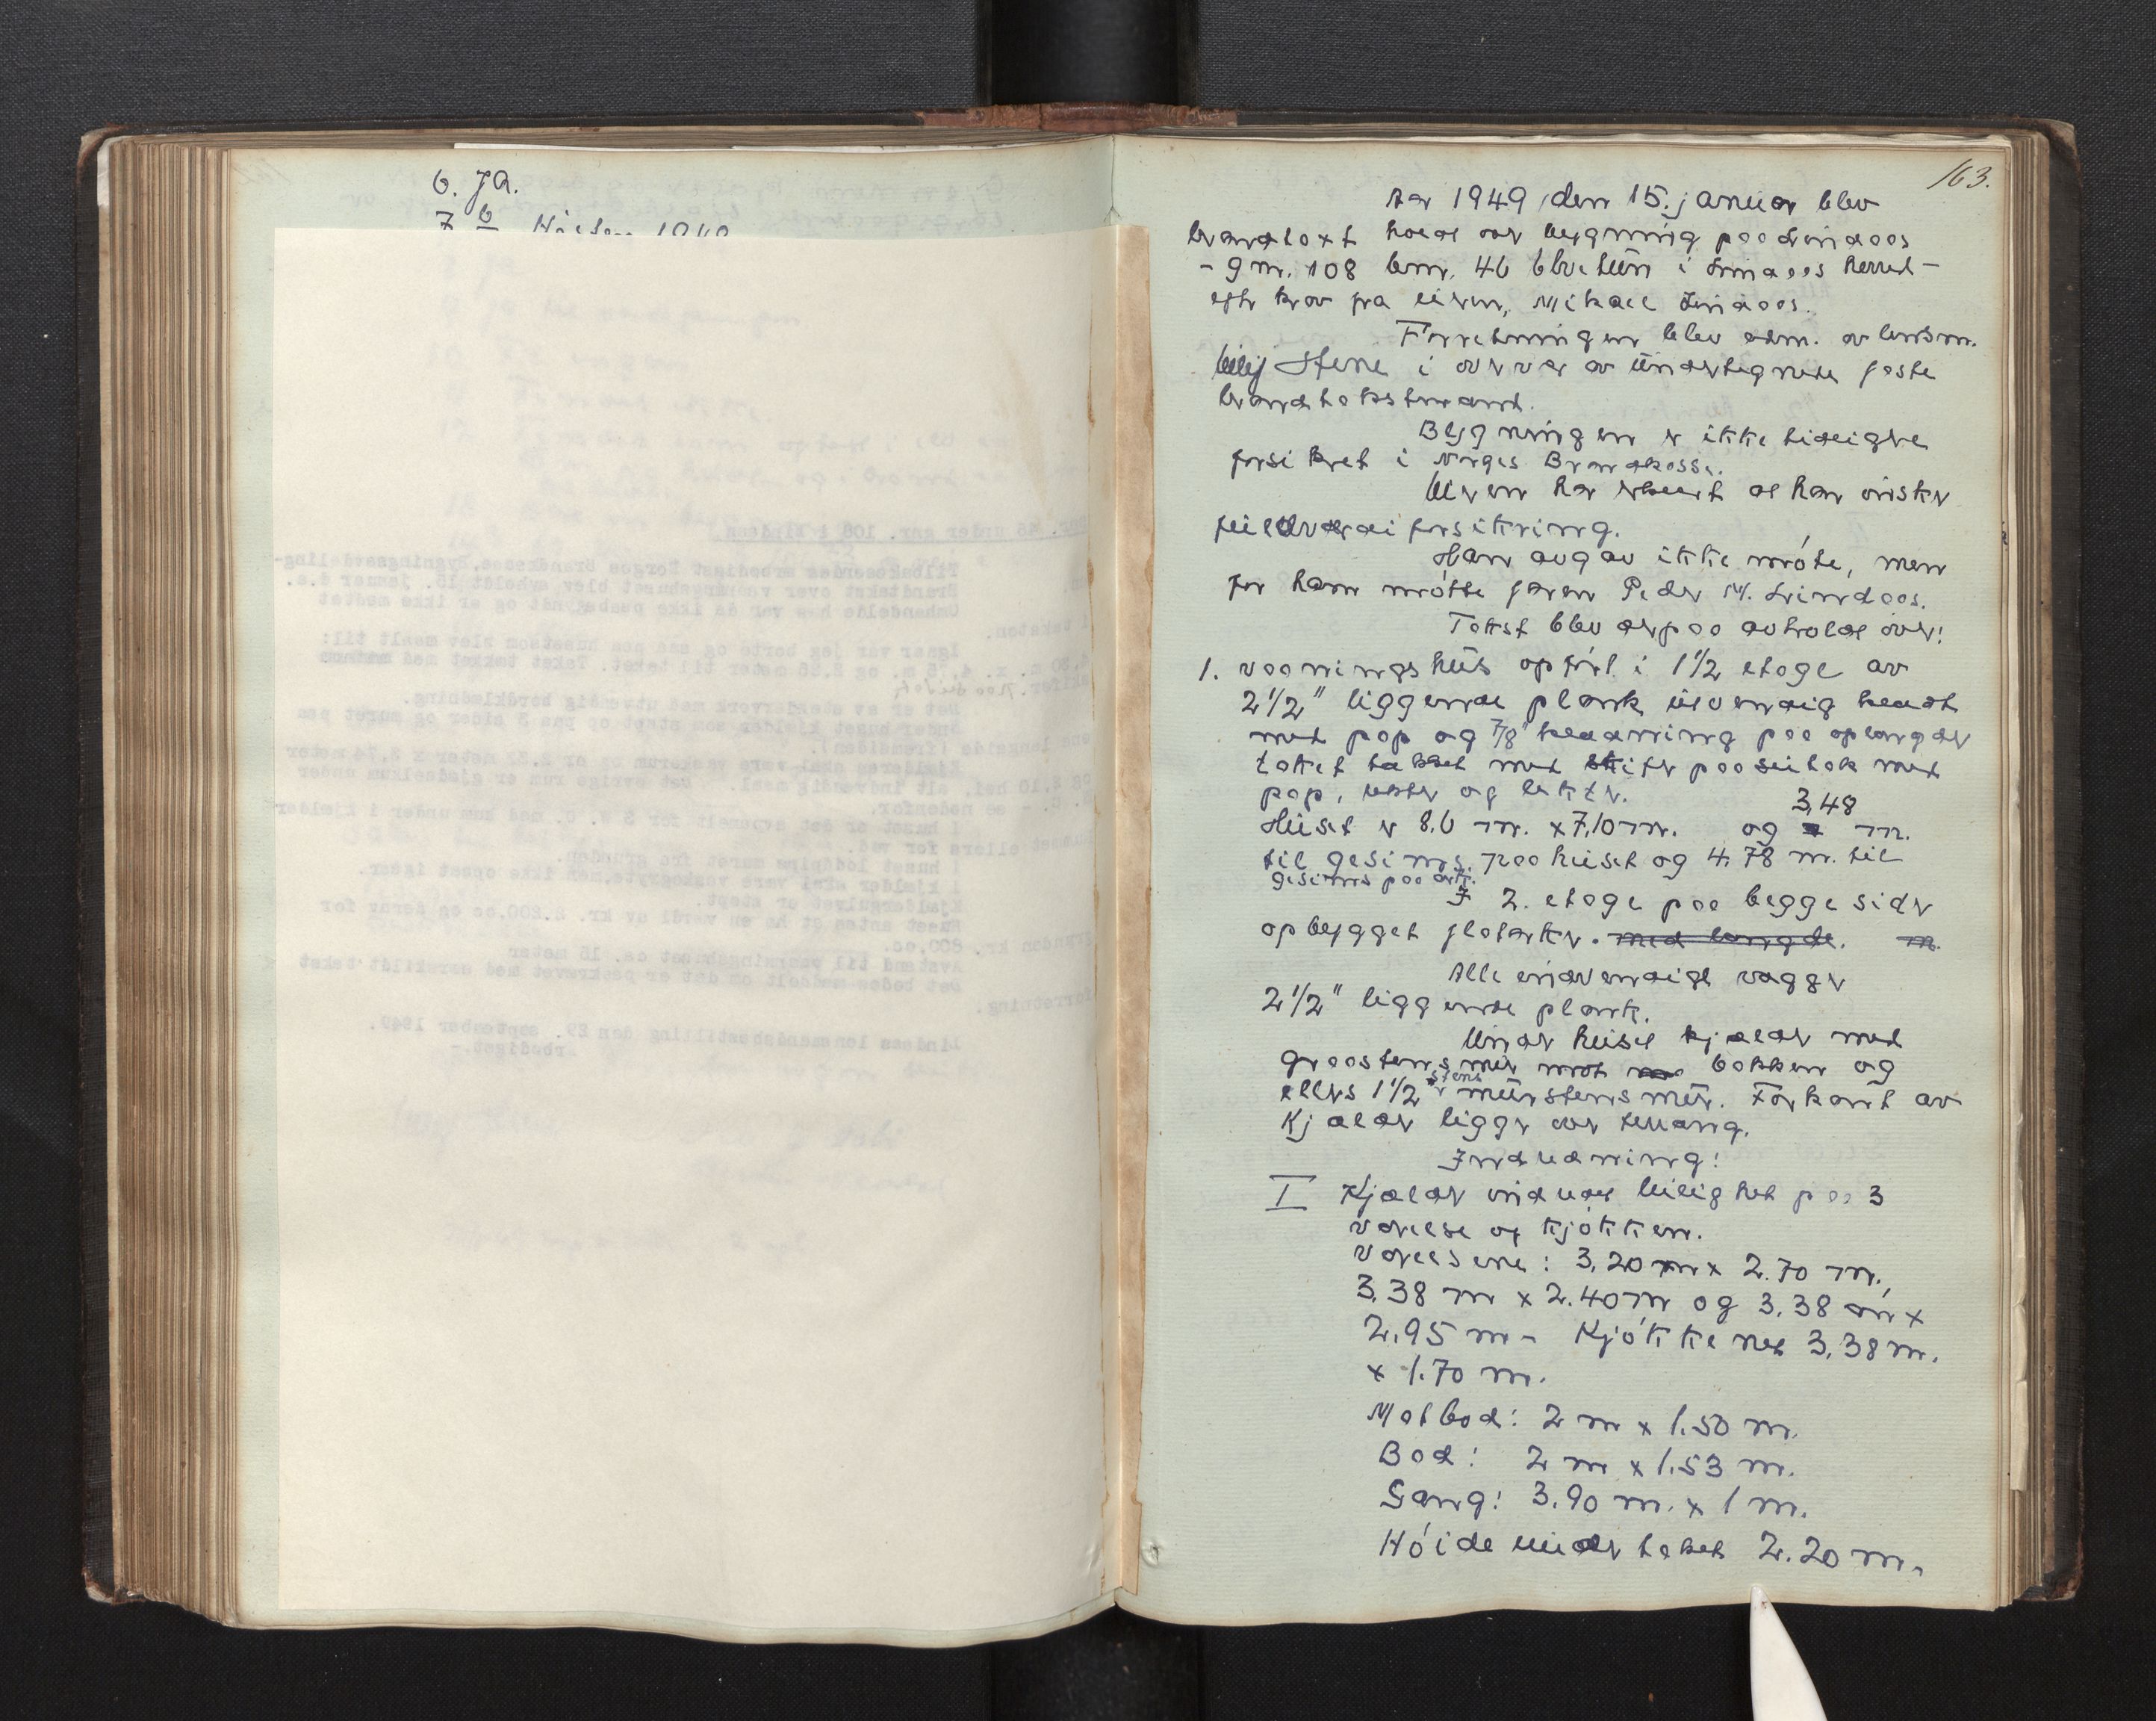 6. Ja.
7 b Høsten 1948
163.
Aar 1949 den 15. januar blev
brandtakst holdt over bygning paa Lindaas
- gnr. 108 bnr. 46 i Lindaas herred -
efter krav fra eieren, Mikael Lindaas.
Forretningen blev adm. av lensm.
Stene i overvær av undertegnede faste
brandtakstmænd.
Bygningen er ikke tidligere
forsikret i Norges Brandkasse.
Eieren har at han ønsker
fuldverdiforsikring.
Han avgav ikke møte, men
for ham møtte faren Peder M. Lindaas.
Takst blev derpaa avholdt over:
1. Vaaningshus opført i 1½ etage av
2½" liggende plank utvendig klædt
med pap og 7/8" klædning paa oplengder
taket tækket med skifer paa sutak med
pap, og lekter.
Huset er 8,0 m. x 7,10 m. og 3,48 m.
til gesims paa huset og 4.78 m. til
gesims paa ark.
I 2. etage paa begge sider
opbygget flatarker. med længde. m.
Alle indvendige vægger
2½" liggende plank.
Under huset kjælder med
graastensmur mot bakken og
ellers 1½ stens murstensmur. Forkant av
kjælder ligger over terræng.
Indredning:
I Kjælder indredet leilighet paa 3
værelse og kjøkken.
Værelsene: 3.20 m x 2.70 m.,
3.38 m x 2.40 m og 3.38 m x
2.95 m - Kjøkkenet 3.38 m.
x 1.70 m.
Matbod: 2 m x 1.50 m.
Bod: 2 m x 1.53 m.
Gang: 3.90 m. x 1 m.
Høide under taket 2.20 m.